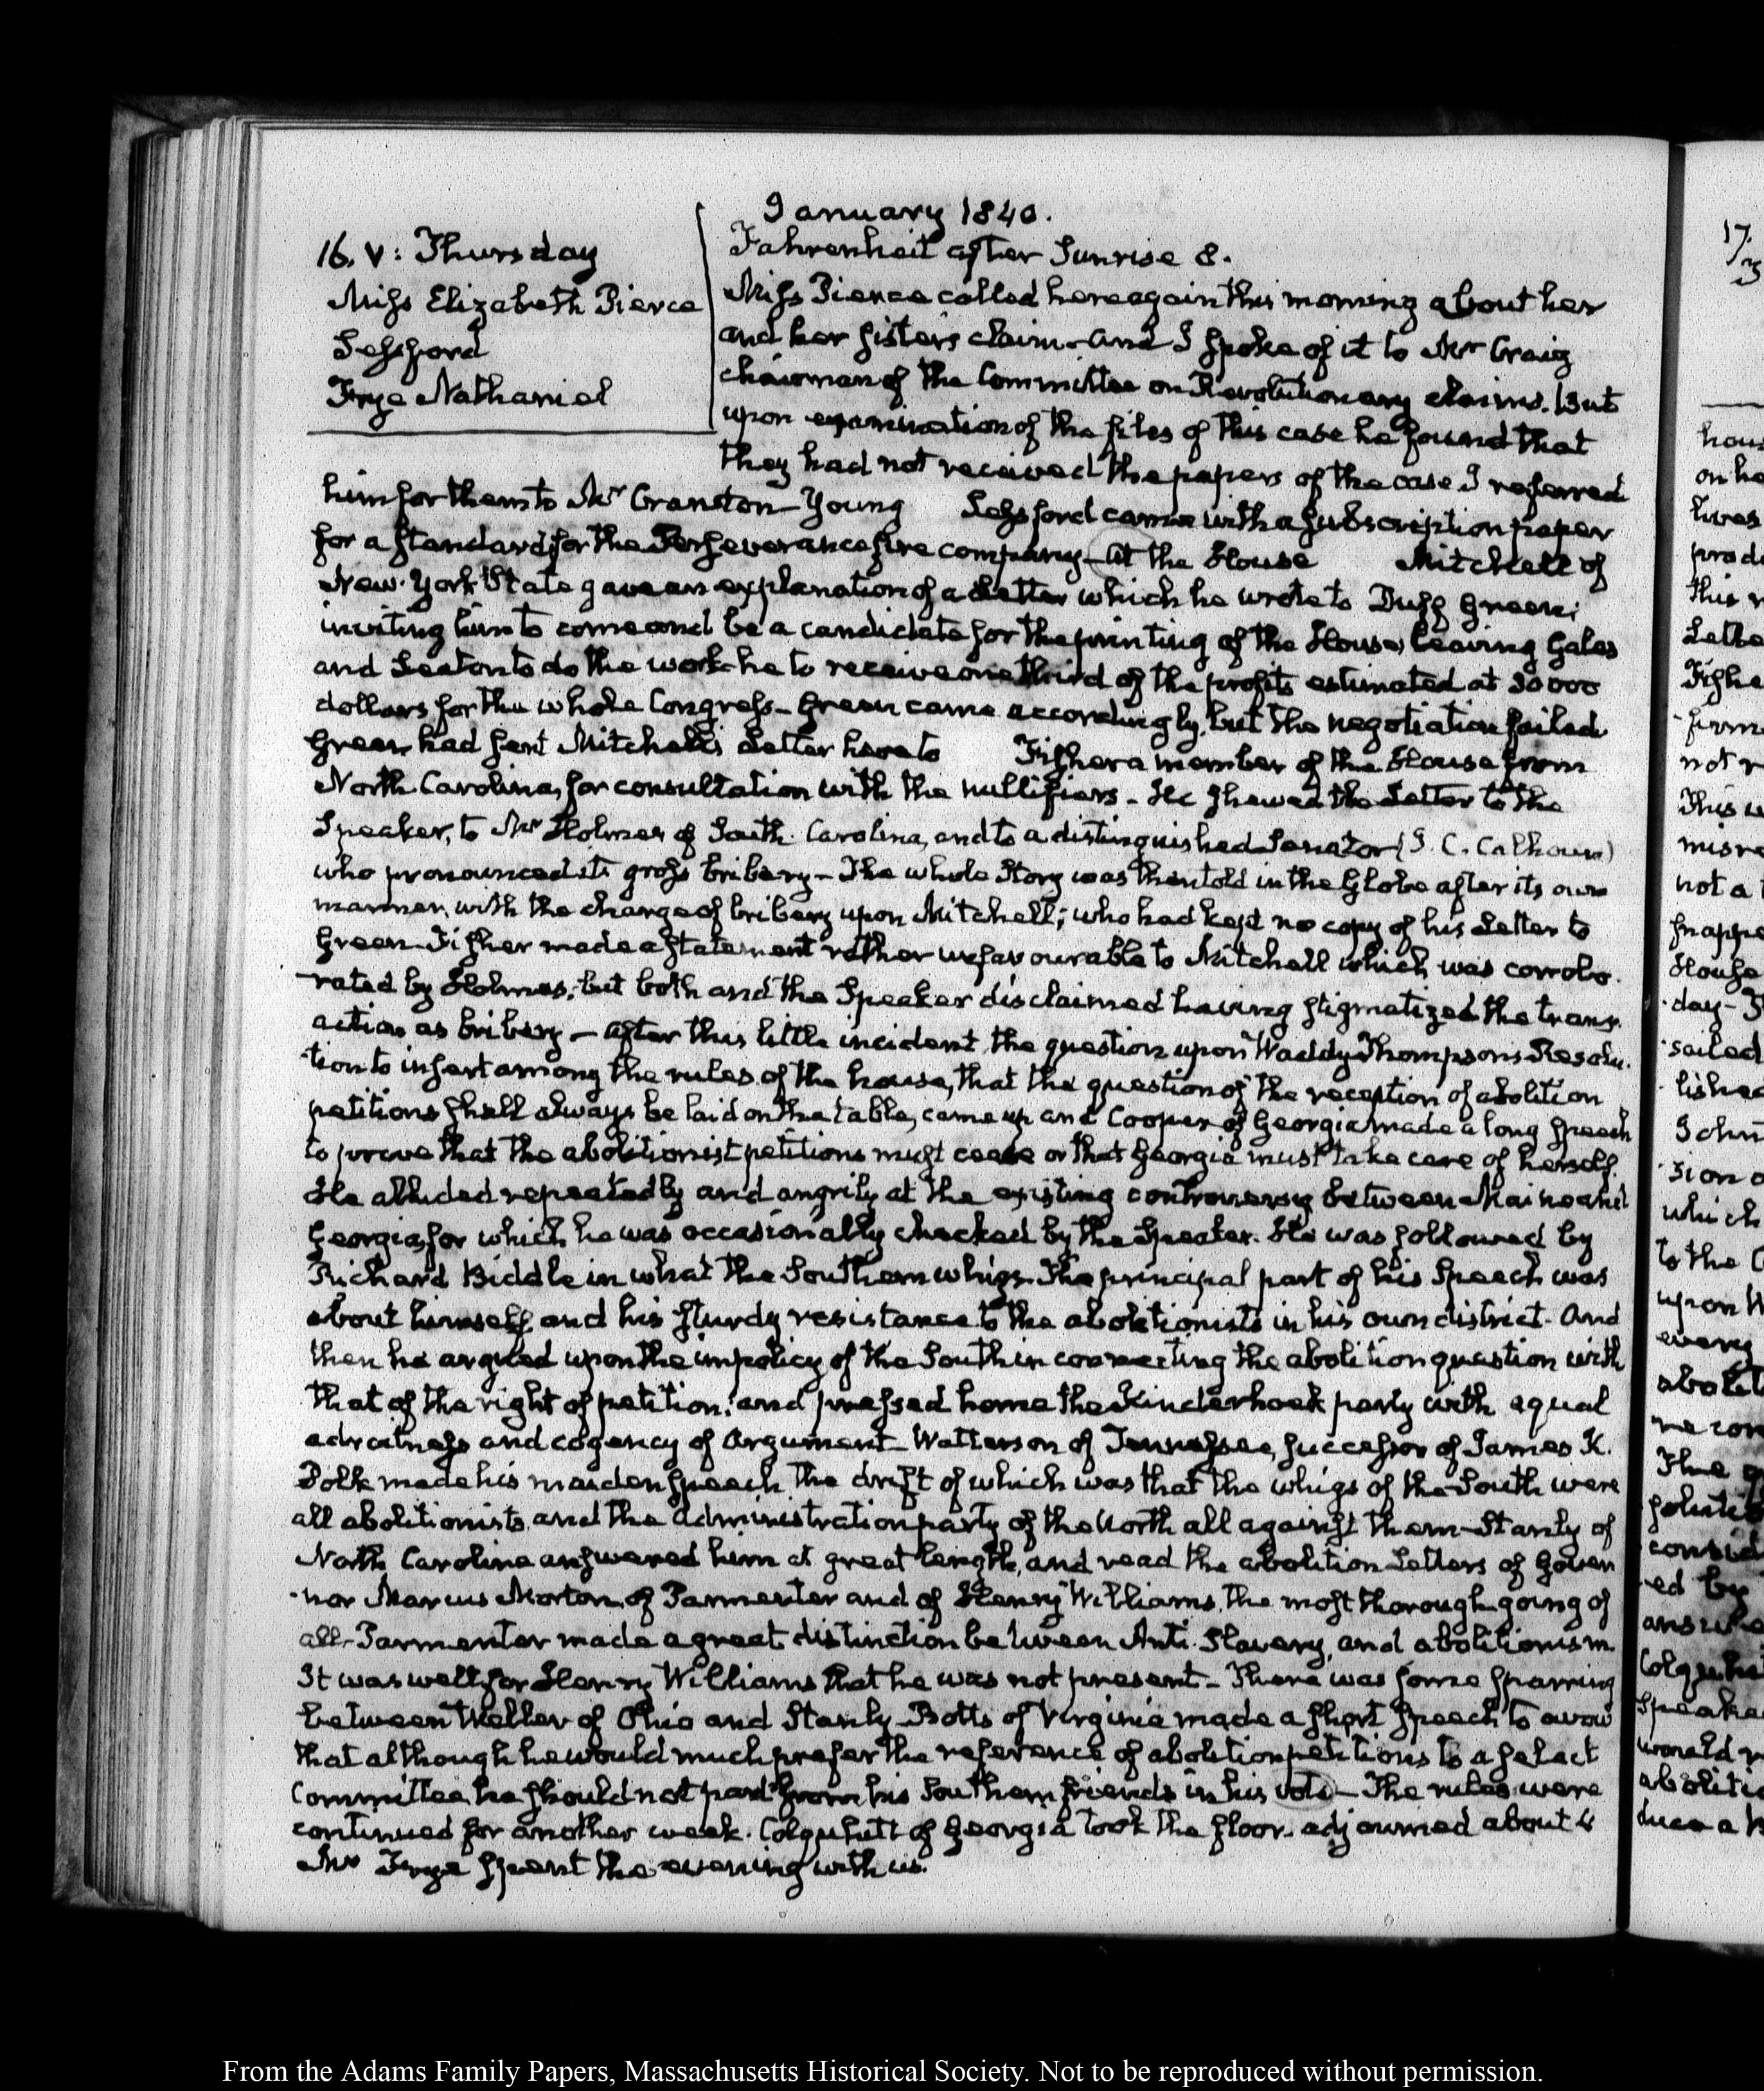 January 1840.
16. V: Thursday
Miss Elizabeth Pierce
Sessford
Frye Nathaniel
Fahrenheit after Sunrise 8.
Miss Pierce called here again this morning about her
and her Sisters claim – And I spoke of it to Mr Craig
chairman of the Committee on Revolutionary claims. But
upon examination of the files of this case he found that
they had not received the papers of the case I referred
him for them to Mr Cranston – Young Sessford came with a subscription paper
for a standard for the Perseverance fire company – At the House Mitchell of
New-York State gave an explanation of a Letter which he wrote to Duff Green;
inviting him to come and be a candidate for the printing of the House, leaving Gales
and Seaton to do the work – he to receive one third of the profits estimated at 30000
dollars for the whole Congress – Green came accordingly, but the negotiation failed
Green had sent Mitchell's Letter here to Fisher a member of the House from
North Carolina, for consultation with the nullifiers – He shewed the Letter to the
Speaker, to Mr Holmes of South Carolina, and to a distinguished Senator (J. C. Calhoun)
who pronounced it gross bribery – The whole Story was then told in the Globe after its own
manner, with the charge of bribery upon Mitchell; who had kept no copy of his Letter to
Green – Fisher made a statement rather unfavourable to Mitchell which was corrobo-
-rated by Holmes; but both and the Speaker disclaimed having stigmatized the trans-
action as bribery – After this little incident, the question upon Waddy Thompson's Resolu-
-tion to insert among the rules of the house, that the question of the reception of abolition
petitions shall always be laid on the table, came up and Cooper of Georgia made a long speech
to prove that the abolitionist petitions must cease or that Georgia must take care of herself.
He alluded repeatedly and angrily at the existing controversy between Maine and
Georgia, for which he was occasionally checked by the Speaker. He was followed by
Richard Biddle in what the Southern whigs. The principal part of his Speech was
about himself, and his sturdy resistance to the abolitionists in his own district. And
then he argued upon the impolicy of the South in connecting the abolition question with
that of the right of petition; and pressed home the Kinderhook party with equal
adroitness and cogency of Argument – Watterson of Tennessee, successor of James K.
Polk made his maiden speech the drift of which was that the whigs of the South were
all abolitionists, and the Administration party of the North all against them – Stanly of
North Carolina answered him at great length, and read the abolition Letters of Gover
-nor Marcus Morton, of Parmenter and of Henry Williams, the most thorough-going of
all – Parmenter made a great distinction between Anti-Slavery, and abolitionism
It was well for Henry Williams that he was not present – There was some sparring
between Weller of Ohio and Stanly – Botts of Virginia made a short speech to avow
that although he would much prefer the reference of abolition petitions to a select
Committee, he should not part from his Southern friends in his vote – The rules were
continued for another week. Colquhitt of Georgia took the floor. adjourned about 4
Mr Frye spent the evening with us.
17.
From the Adams Family Papers, Massachusetts Historical Society. Not to be reproduced without permission.